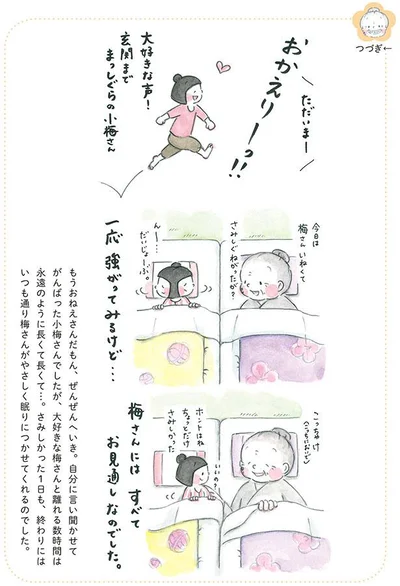 つづき←
ただいまー
おかえりーっ!!
大好きな声!
玄関まで
まっしぐらの小梅さん
今日は
梅さんいねくて
さみしぐねがったが?
んー…
だいじょーぶ。
一応 強がってみるけど…
こっちゃ け
(こっちにおいで)
いいの?
ホントはね
ちょっとだけ
さみしかった
梅さんには すべて
お見通しなのでした。
もうおねえさんだもん、ぜんぜんへいき。自分に言い聞かせて
がんばった小梅さんでしたが、大好きな梅さんと離れる数時間は
永遠のように長くて長くて…。さみしかった1日も、終わりには
いつも通り梅さんがやさしく眠りにつかせてくれるのでした。